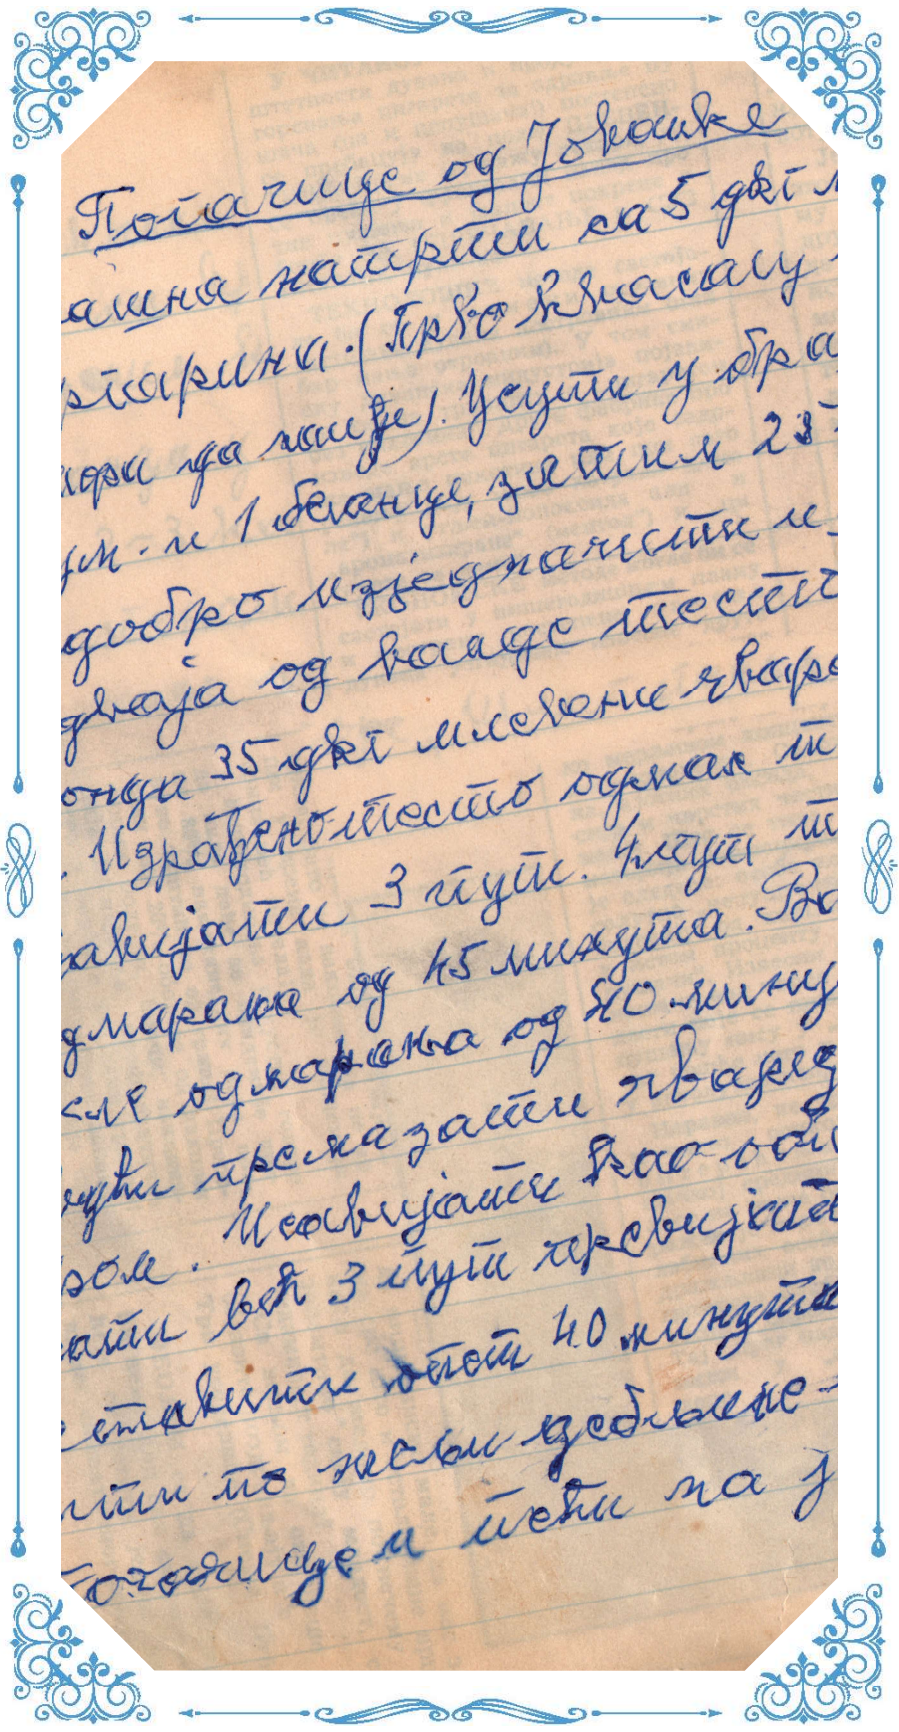 Погачице од Јованке
ашна натрти са 5 дкг м
ргарина. (Прво квасац
да нађе). Усути у бра
ум. и 1 беланце, затим 2
добро изједначити и
дваја од ванде тесто
онда 35 дкг млевене чвар
. Израђено тесто одмах т
авијати 3 пут. 4 пут т
дмарања од 45 минута. Во
сле одмарања од 40 мину
премазати чварц
ром. Исавијати као оби
ати већ 3 пут превијат
ставити опет 40 минута
ити по жељи дебљине
погачице и пећи на ј